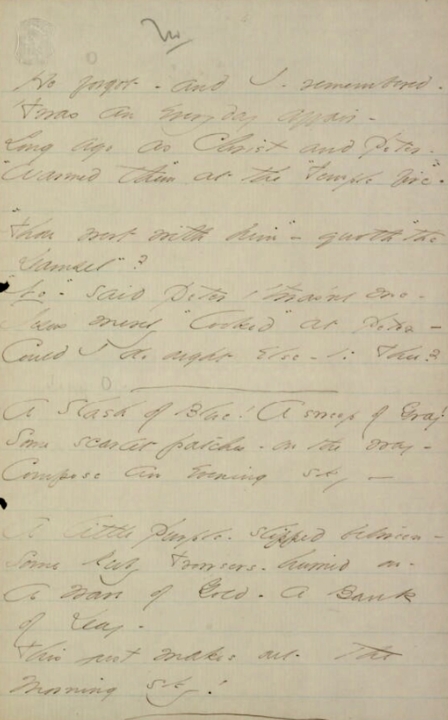 He forgot - and I - remembered -
'Twas an everyday affair -
Long ago as Christ and Peter -
"Warmed them" at the "Temple fire".
"Thou wert with him" - quoth "the
Damsel"?
"No" - said Peter, 'twas'nt me -
Jesus merely "looked" at Peter -
Could I do aught else - to Thee?
A slash of Blue! A sweep of Gray!
Some scarlet patches - on the way -
Compose an evening sky -
A little Purple - slipped between -
Some Ruby Trowsers - hurried on -
A Wave of Gold - A Bank
of Day -
This just makes out - the
morning sky!